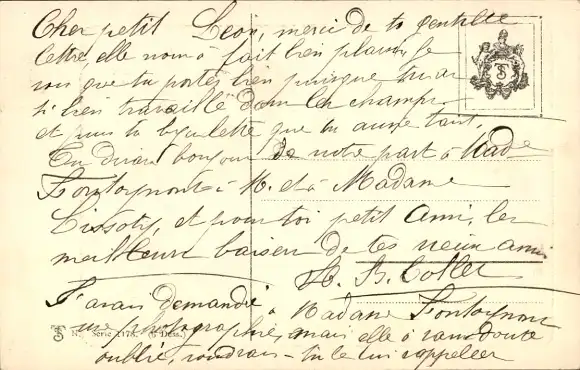 Cher petit Léon, merci de ta gentille
lettre, elle nous à fait bien plaisir, je
vois que tu portes bien puisque tu as
si bien travaillé dans les champs
et puis ta que tu aime tant,
Tu diras bonjour de notre part à Made
à M. et à Madame
et pour toi petit ami, les
meilleurs baisers de tes vieux amis
H. B. Collet
J'avais demandé à Madame
une photographie, mais elle à sans doute
oublié, voudrais-tu le lui rappeler
TS N. Série 1178. (3 Dess.)